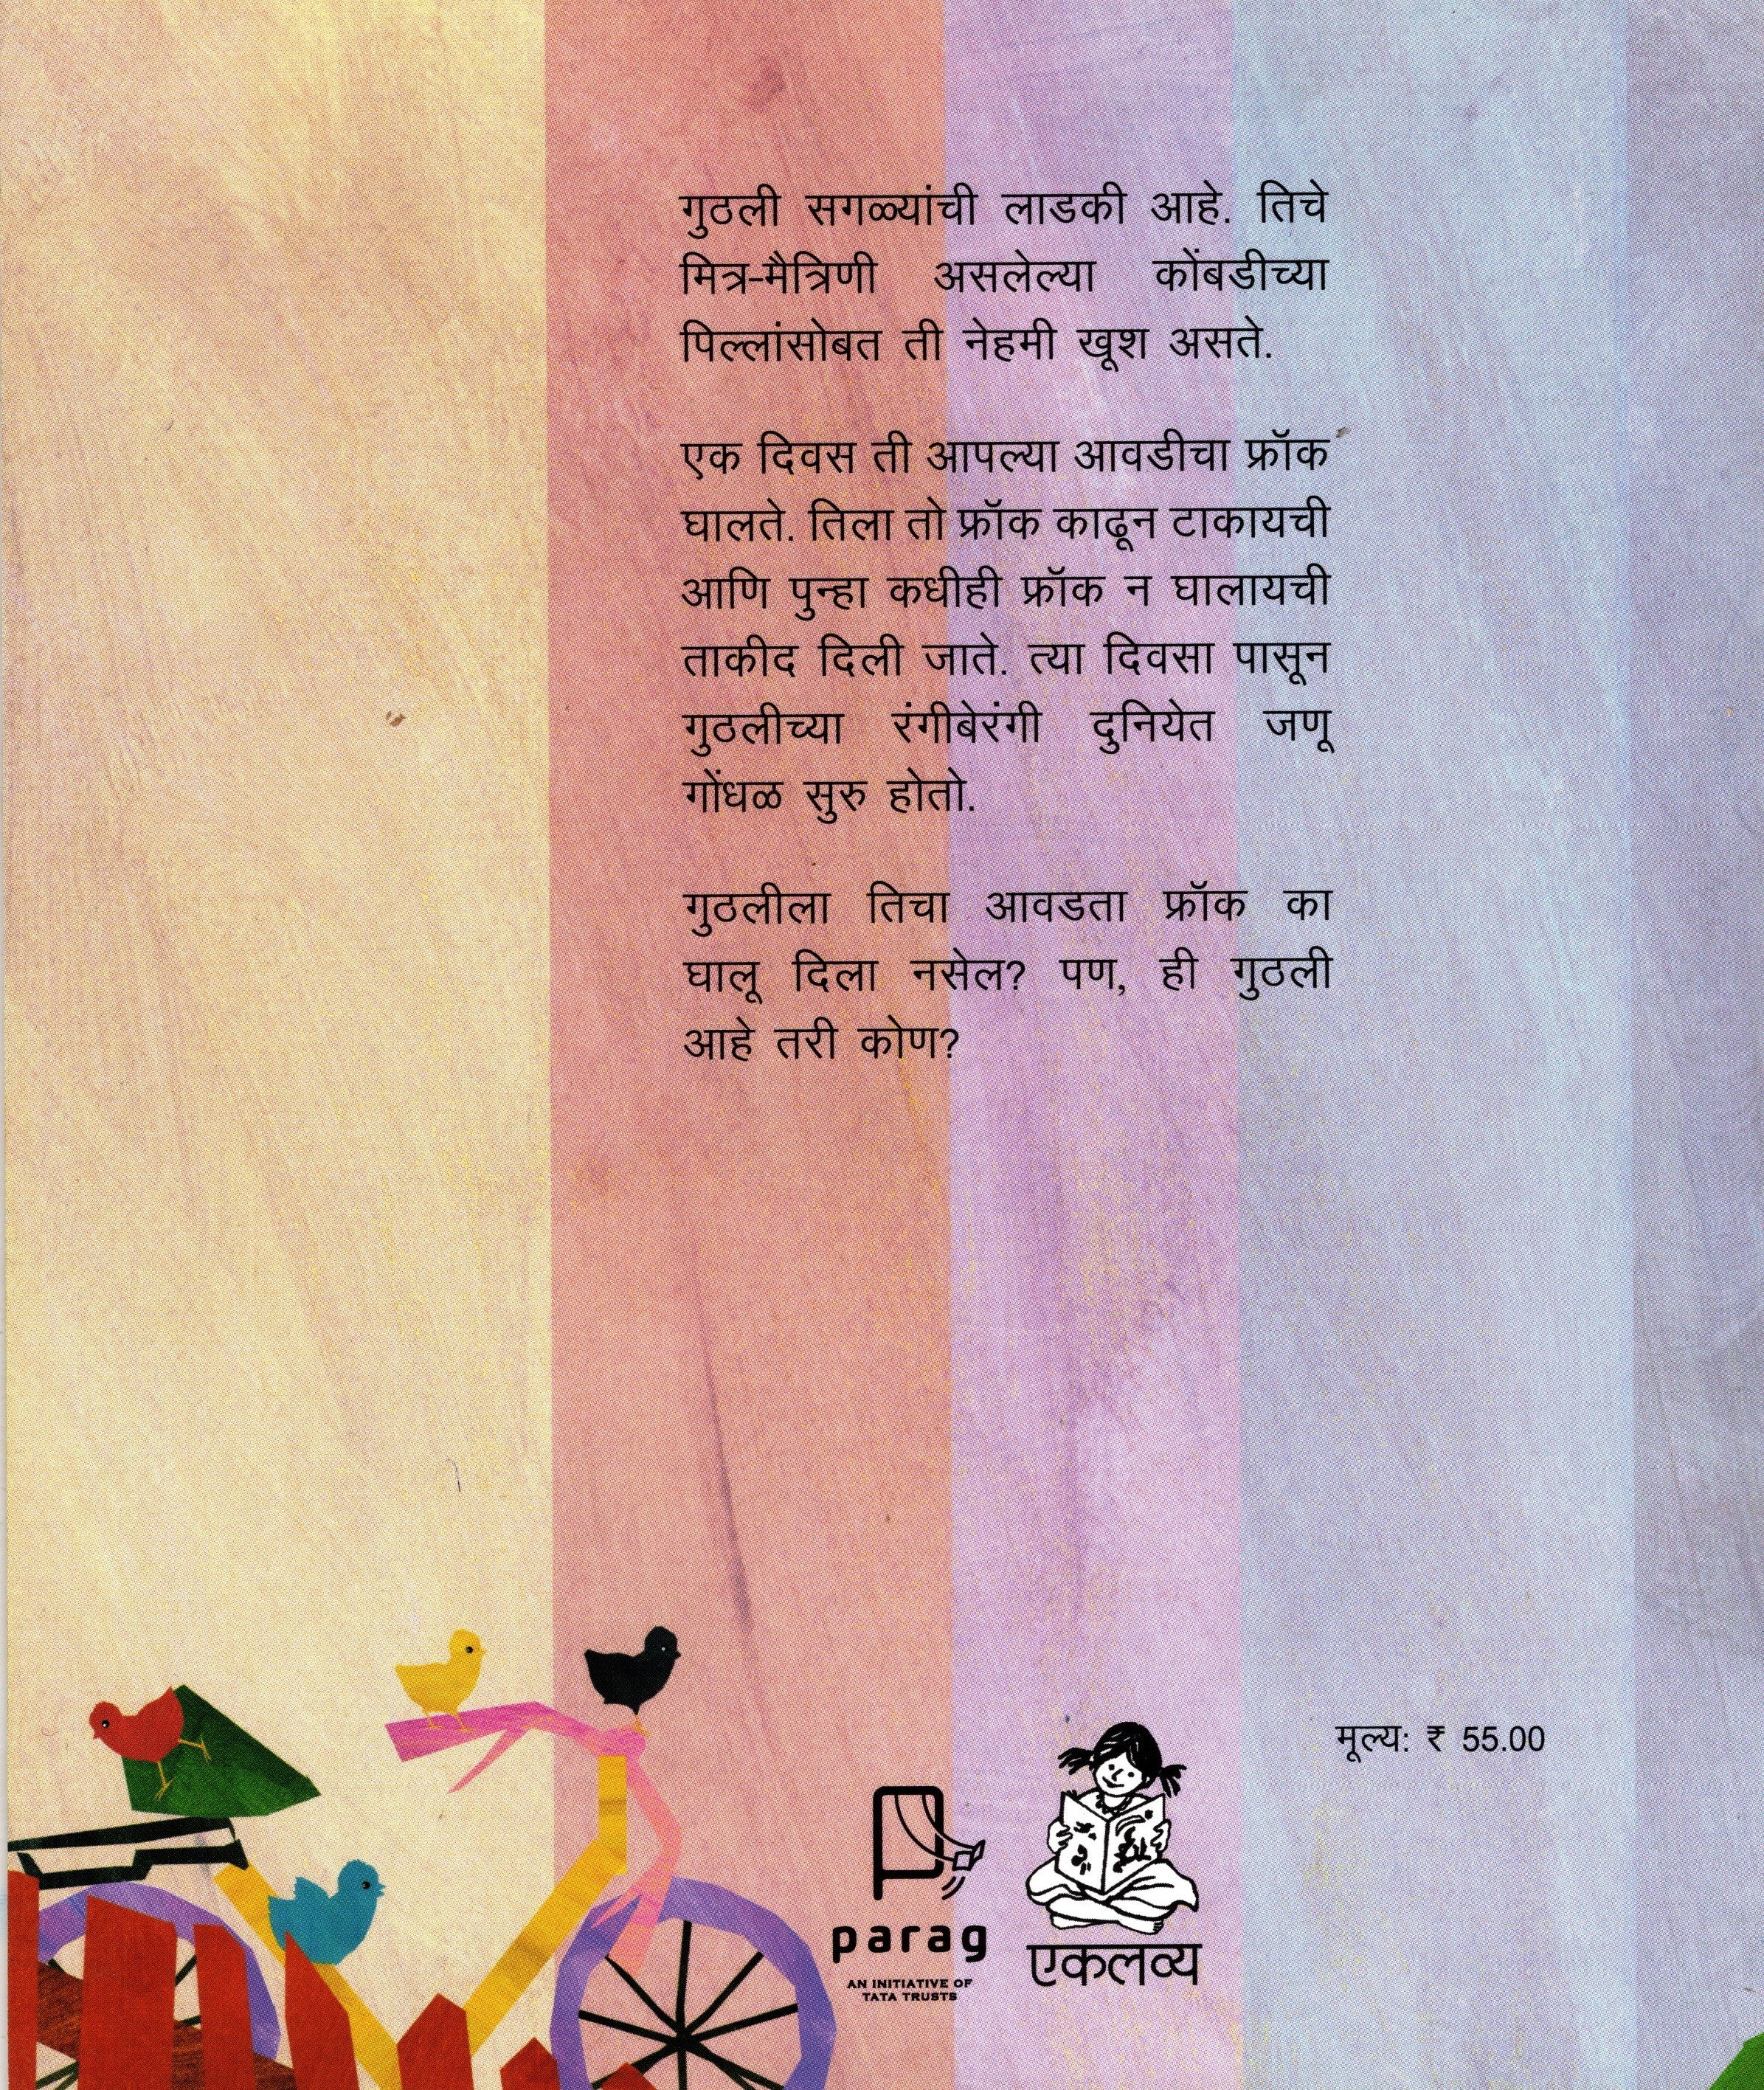 गुठली सगळ्यांची लाडकी आहे. तिचे
मित्र-मैत्रिणी असलेल्या कोंबडीच्या
पिल्लांसोबत ती नेहमी खूश असते.
एक दिवस ती आपल्या आवडीचा फ्रॉक
घालते. तिला तो फ्रॉक काढून टाकायची
आणि पुन्हा कधीही फ्रॉक न घालायची
ताकीद दिली जाते. त्या दिवसा पासून
गुठलीच्या रंगीबेरंगी दुनियेत जणू
गोंधळ सुरु होतो.
गुठलीला तिचा आवडता फ्रॉक का
घालू दिला नसेल? पण, ही गुठली
आहे तरी कोण?
मूल्य: ₹ 55.00
parag
AN INITIATIVE OF
TATA TRUSTS
एकलव्य